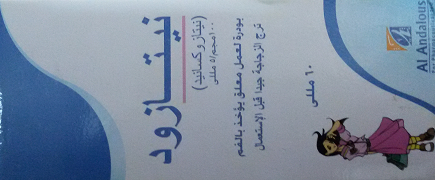 نيتازود
(نيتازوكسانيد)
١٠٠مجم/٥ مللى
بودرة لعمل معلق يؤخذ بالفم
ترج الزجاجة جيدا قبل الاستعمال
٦٠ مللى
Al Andalous